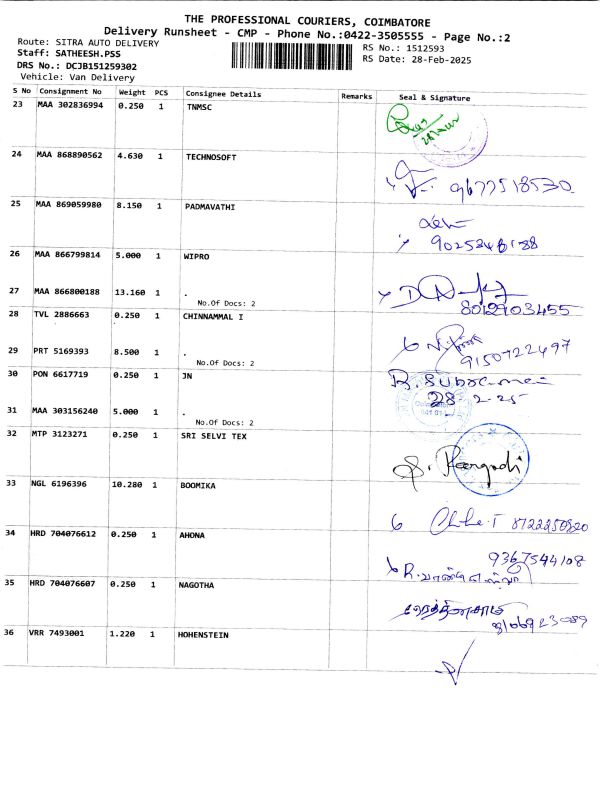 THE PROFESSIONAL COURIERS, COIMBATORE
Delivery Runsheet - CMP - Phone No.:0422-3505555 - Page No.:2
Route: SITRA AUTO DELIVERY
Staff: SATHEESH.PSS
DRS No.: DCJB151259302
Vehicle: Van Delivery
RS No.: 1512593
RS Date: 28-Feb-2025
S No Consignment No Weight PCS Consignee Details Remarks Seal & Signature
23 MAA 302836994 0.250 1 TNMSC
24 MAA 868890562 4.630 1 TECHNOSOFT
9677518530
25 MAA 869059980 8.150 1 PADMAVATHI
26 MAA 866799814 5.000 1 WIPRO
27 MAA 866800188 13.160 1 .
No.Of Docs: 2
28 TVL 2886663 0.250 1 CHINNAMMAL I
29 PRT 5169393 8.500 1 .
No.Of Docs: 2
9150722497
30 PON 6617719 0.250 1 JN
28-2-25
31 MAA 303156240 5.000 1 .
No.Of Docs: 2
32 MTP 3123271 0.250 1 SRI SELVI TEX
33 NGL 6196396 10.280 1 BOOMIKA
8722250820
34 HRD 704076612 0.250 1 AHONA
9367544108
35 HRD 704076607 0.250 1 NAGOTHA
36 VRR 7493001 1.220 1 HOHENSTEIN